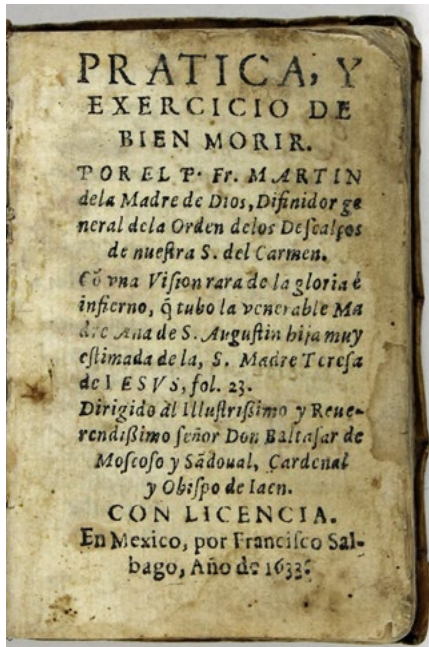 PRATICA, Y
EXERCICIO DE
BIEN MORIR.
POR EL P. Fr. MARTIN
dela Madre de Dios, Difinidor ge
neral dela Orden delos Deſcalços
de nueſtra S. del Carmen.
Cõ vna Viſion rara de la gloria è
infierno, q̃ tubo la venerable Ma
dre Ana de S. Auguſtin hija muy
eſtimada de la, S. Madre Tereſa
de IESVS, fol. 23.
Dirigido àl Illuſtriſsimo y Reue-
rendiſsimo ſeñor Don Baltaſar de
Moſcoſo y Sãdoual, Cardenal
y Obiſpo de Iaen.
CON LICENCIA.
En Mexico, por Franciſco Sal-
bago, Año de 1633.